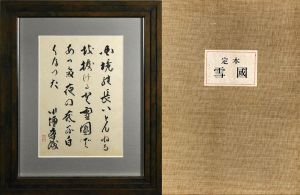 国境の長いとんねるを
抜けると雪國で
あつた夜の底が白
くなつた
川端康成
定本
雪國